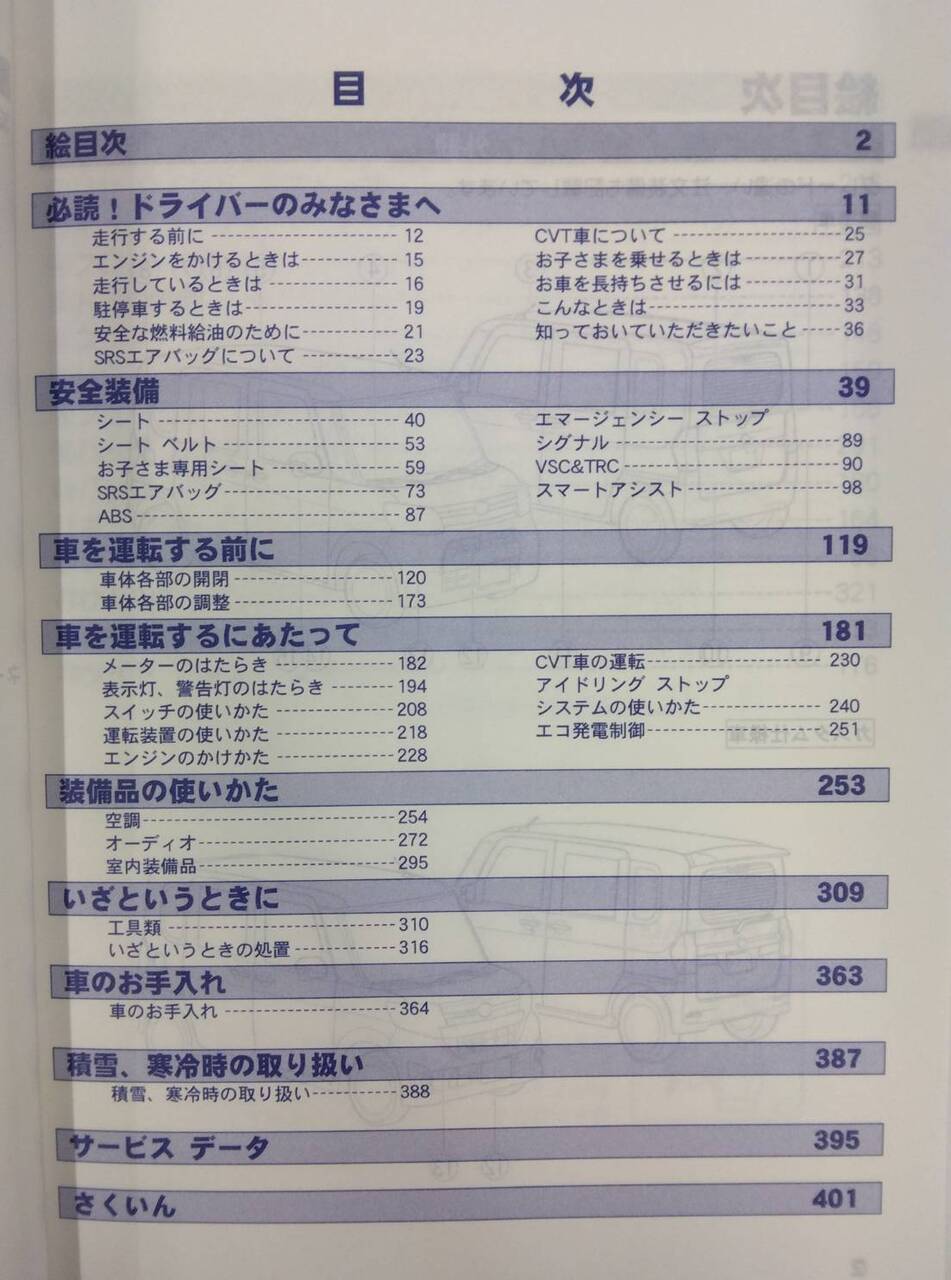 目 次
絵目次 2
必読！ドライバーのみなさまへ 11
走行する前に 12
エンジンをかけるときは 15
走行しているときは 16
駐停車するときは 19
安全な燃料給油のために 21
SRSエアバッグについて 23
CVT車について 25
お子さまを乗せるときは 27
お車を長持ちさせるには 31
こんなときは 33
知っておいていただきたいこと 36
安全装備 39
シート 40
シート ベルト 53
お子さま専用シート 59
SRSエアバッグ 73
ABS 87
エマージェンシー ストップ
シグナル 89
VSC&TRC 90
スマートアシスト 98
車を運転する前に 119
車体各部の開閉 120
車体各部の調整 173
車を運転するにあたって 181
メーターのはたらき 182
表示灯、警告灯のはたらき 194
スイッチの使いかた 208
運転装置の使いかた 218
エンジンのかけかた 228
CVT車の運転 230
アイドリング ストップ
システムの使いかた 240
エコ発電制御 251
装備品の使いかた 253
空調 254
オーディオ 272
室内装備品 295
いざというときに 309
工具類 310
いざというときの処置 316
車のお手入れ 363
車のお手入れ 364
積雪、寒冷時の取り扱い 387
積雪、寒冷時の取り扱い 388
サービス データ 395
さくいん 401